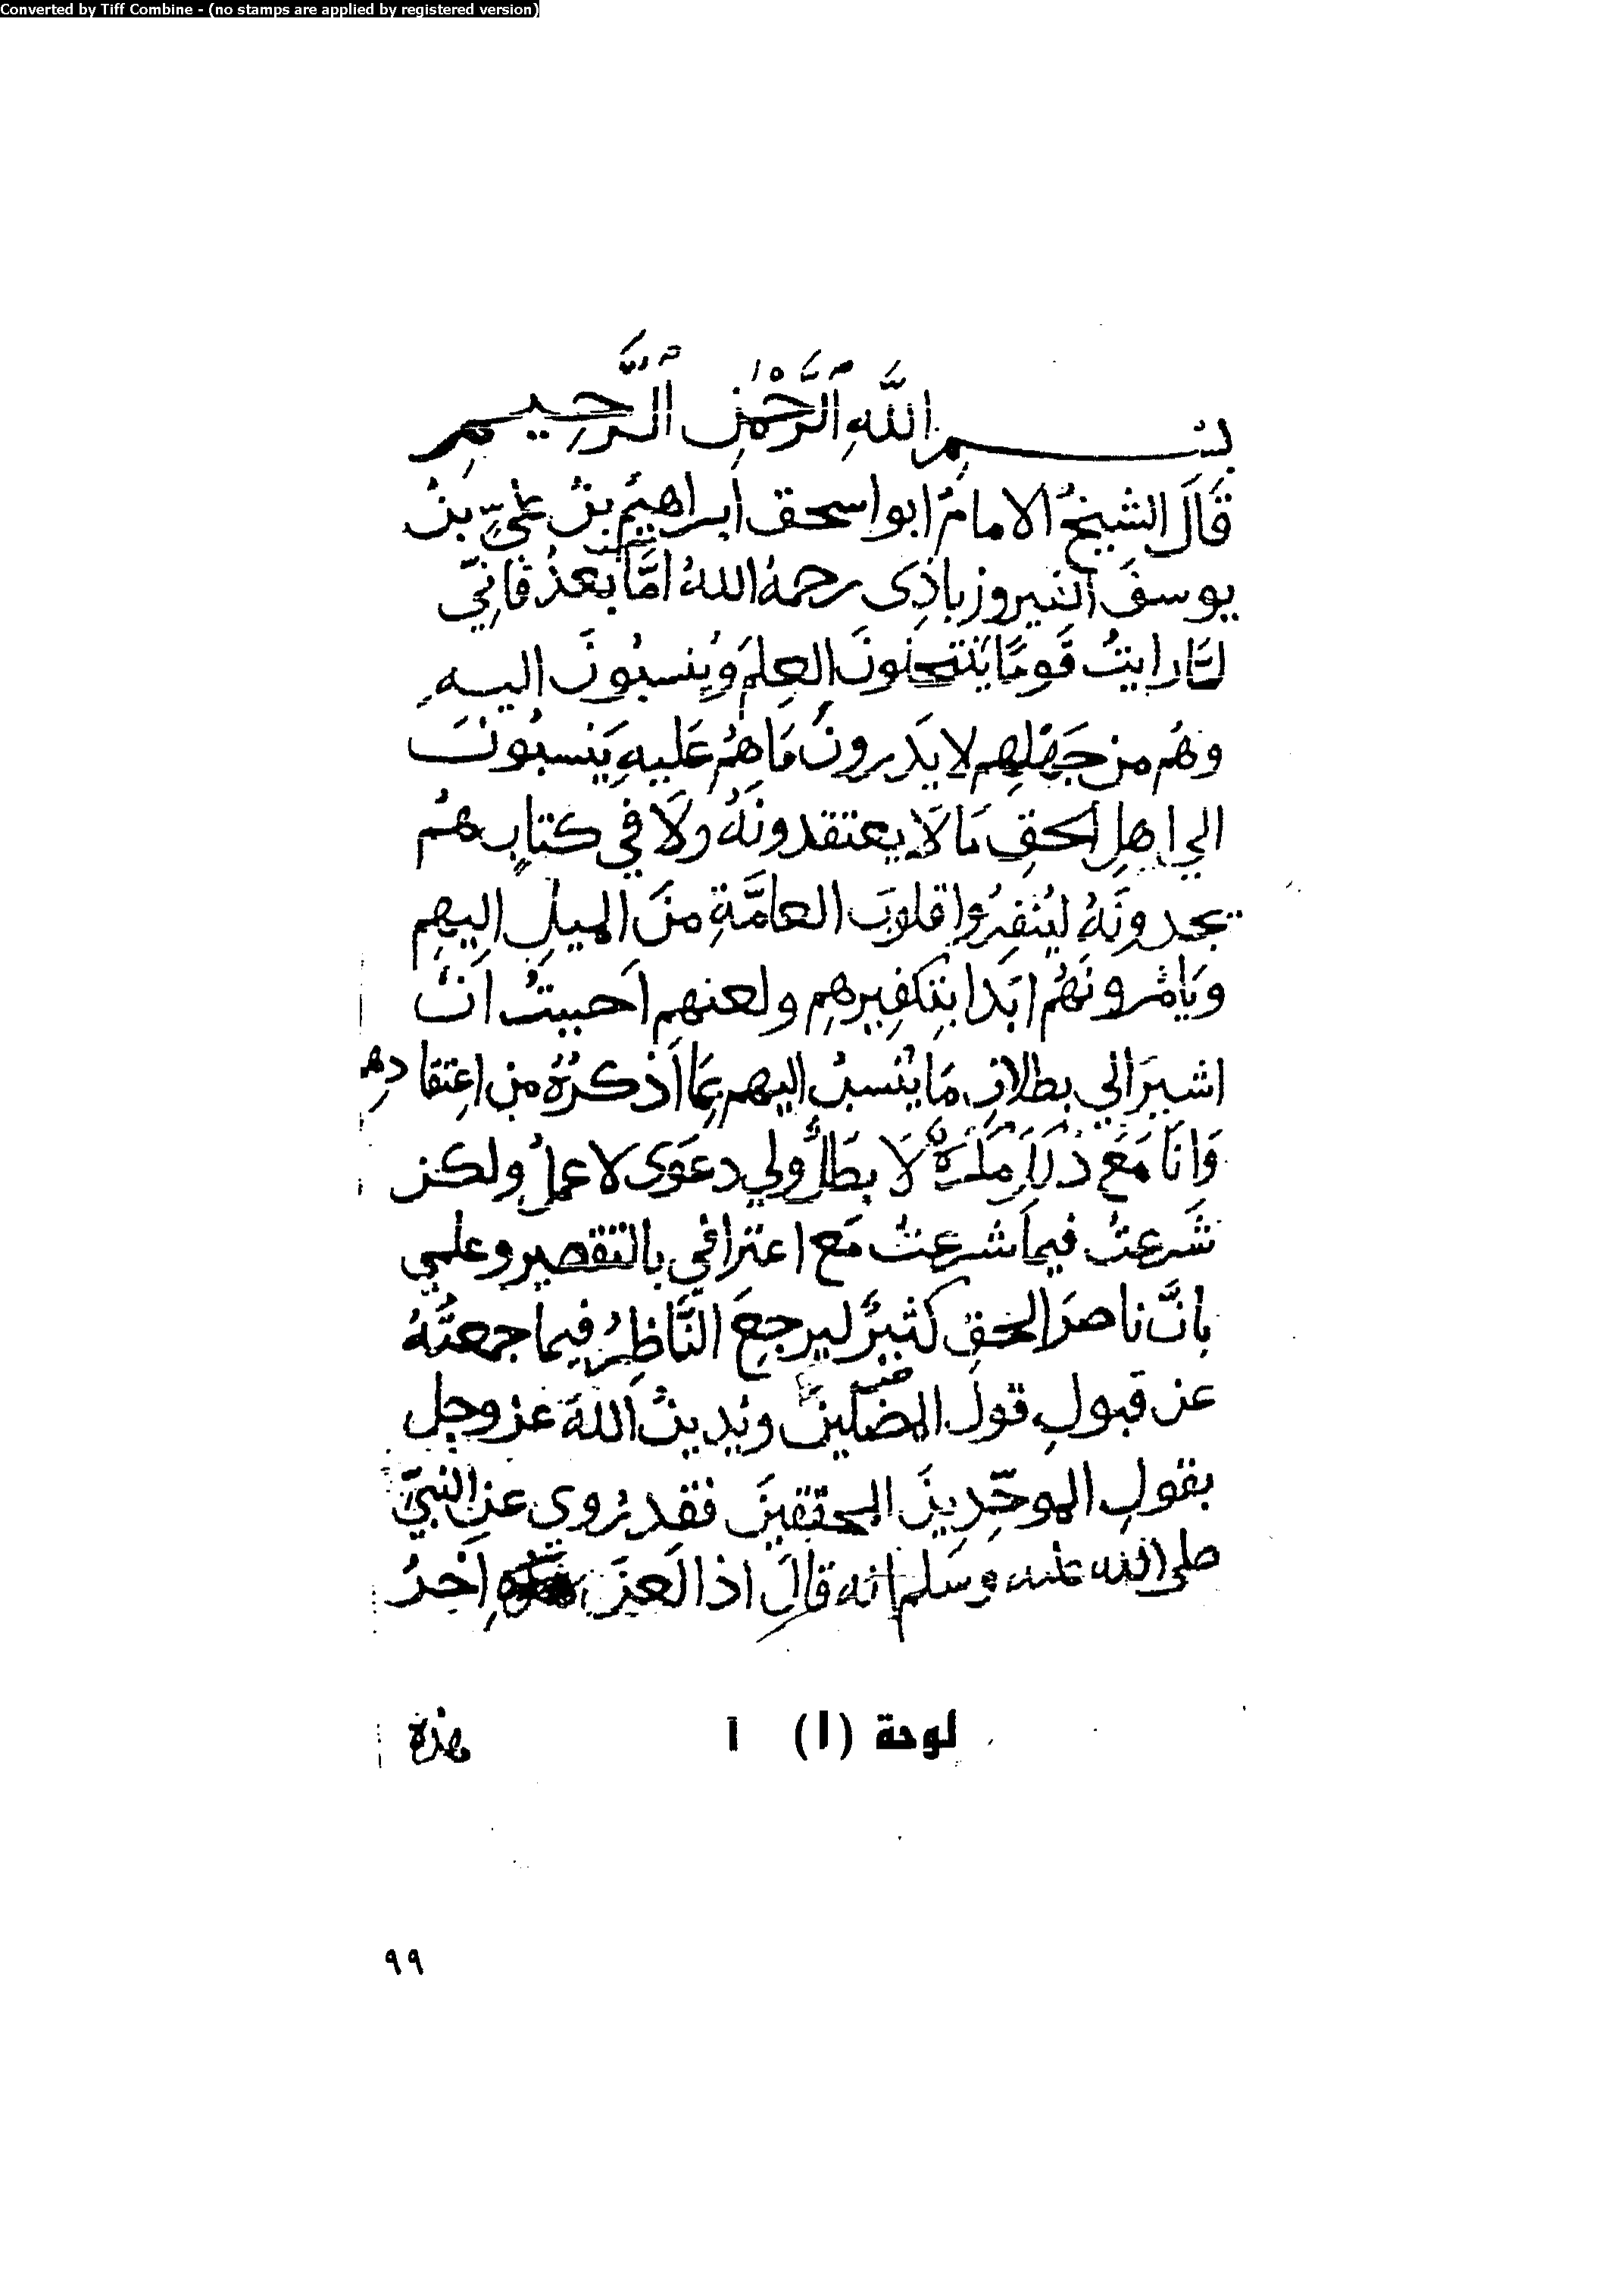 Converted by Tiff Combine - (no stamps are applied by registered version)
بِسْمِ اللَّهِ الرَّحْمٰنِ الرَّحِيمِ
قَالَ الشيخُ الامامُ ابو اسحق ابراهيمُ بنُ عَليِّ بنُ
يوسفَ الفيروزباذِى رحمهُ اللهُ امَّا بَعدُ فَانِّي
لمَّا رايتُ قَومًا يَنتَحِلونَ العِلمَ وَيُنسبُونَ اليهِ
وهُم من جَهْلِهِم لا يَدرونَ مَا هُم عَليهِ يَنسبُونَ
الي اهلِ الحقِ مَا لَا يعتقدونَهُ ولَا في كتابٍ هُم
يجدونَهُ ليُنفِرُوا قلوبَ العامَّةِ منَ الميلِ اليهِم
وَيَامُرونَهُم ابَدا بِتكفِيرهِم ولعنهم احَببتُ انْ
اشيرَ الي بطلانِ مَا يُنسبُ اليهم بِمَا اَذكرُهُ من اعِتقادِهم
وَانَا مَعَ ذلكَ مُكْرَهٌ لَا بطَلٌ ولي دعَوَى لا عملٌ ولكن
شَرعتُ فيما شرعتُ مَع اعترافي بالتقصير وعلمي
بانَّ ناصرَ الحقِ كثيرٌ ليرجعَ النَّاظِرُ فيما جمعتُهُ
عن قبولِ قول المضلينَ ويَدينُ اللهَ عز وجل
بقولِ الموحِّدِينَ المحققينَ فقد رُوى عنِ النبيِّ
صلى الله عليه وسَلم انه قالَ اذا لَعنَ اخِرُ
هذه
لوحة (١) آ
٩٩